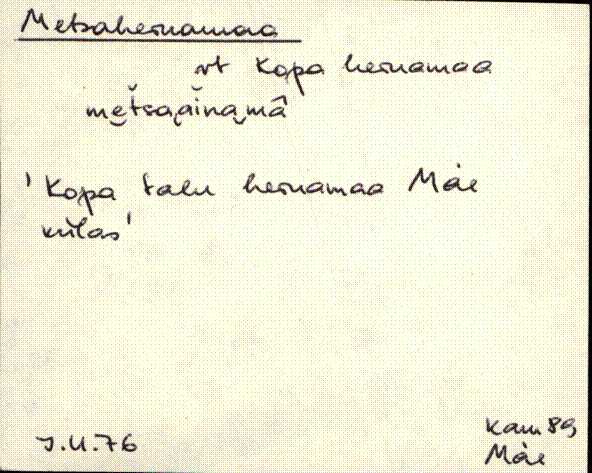 Metsaheinamaa
vt Kopa heinamaa
metsaainamâ
'Kopa talu heinamaa Mäe
külas'
J.U.76
Kam 89
Mäe